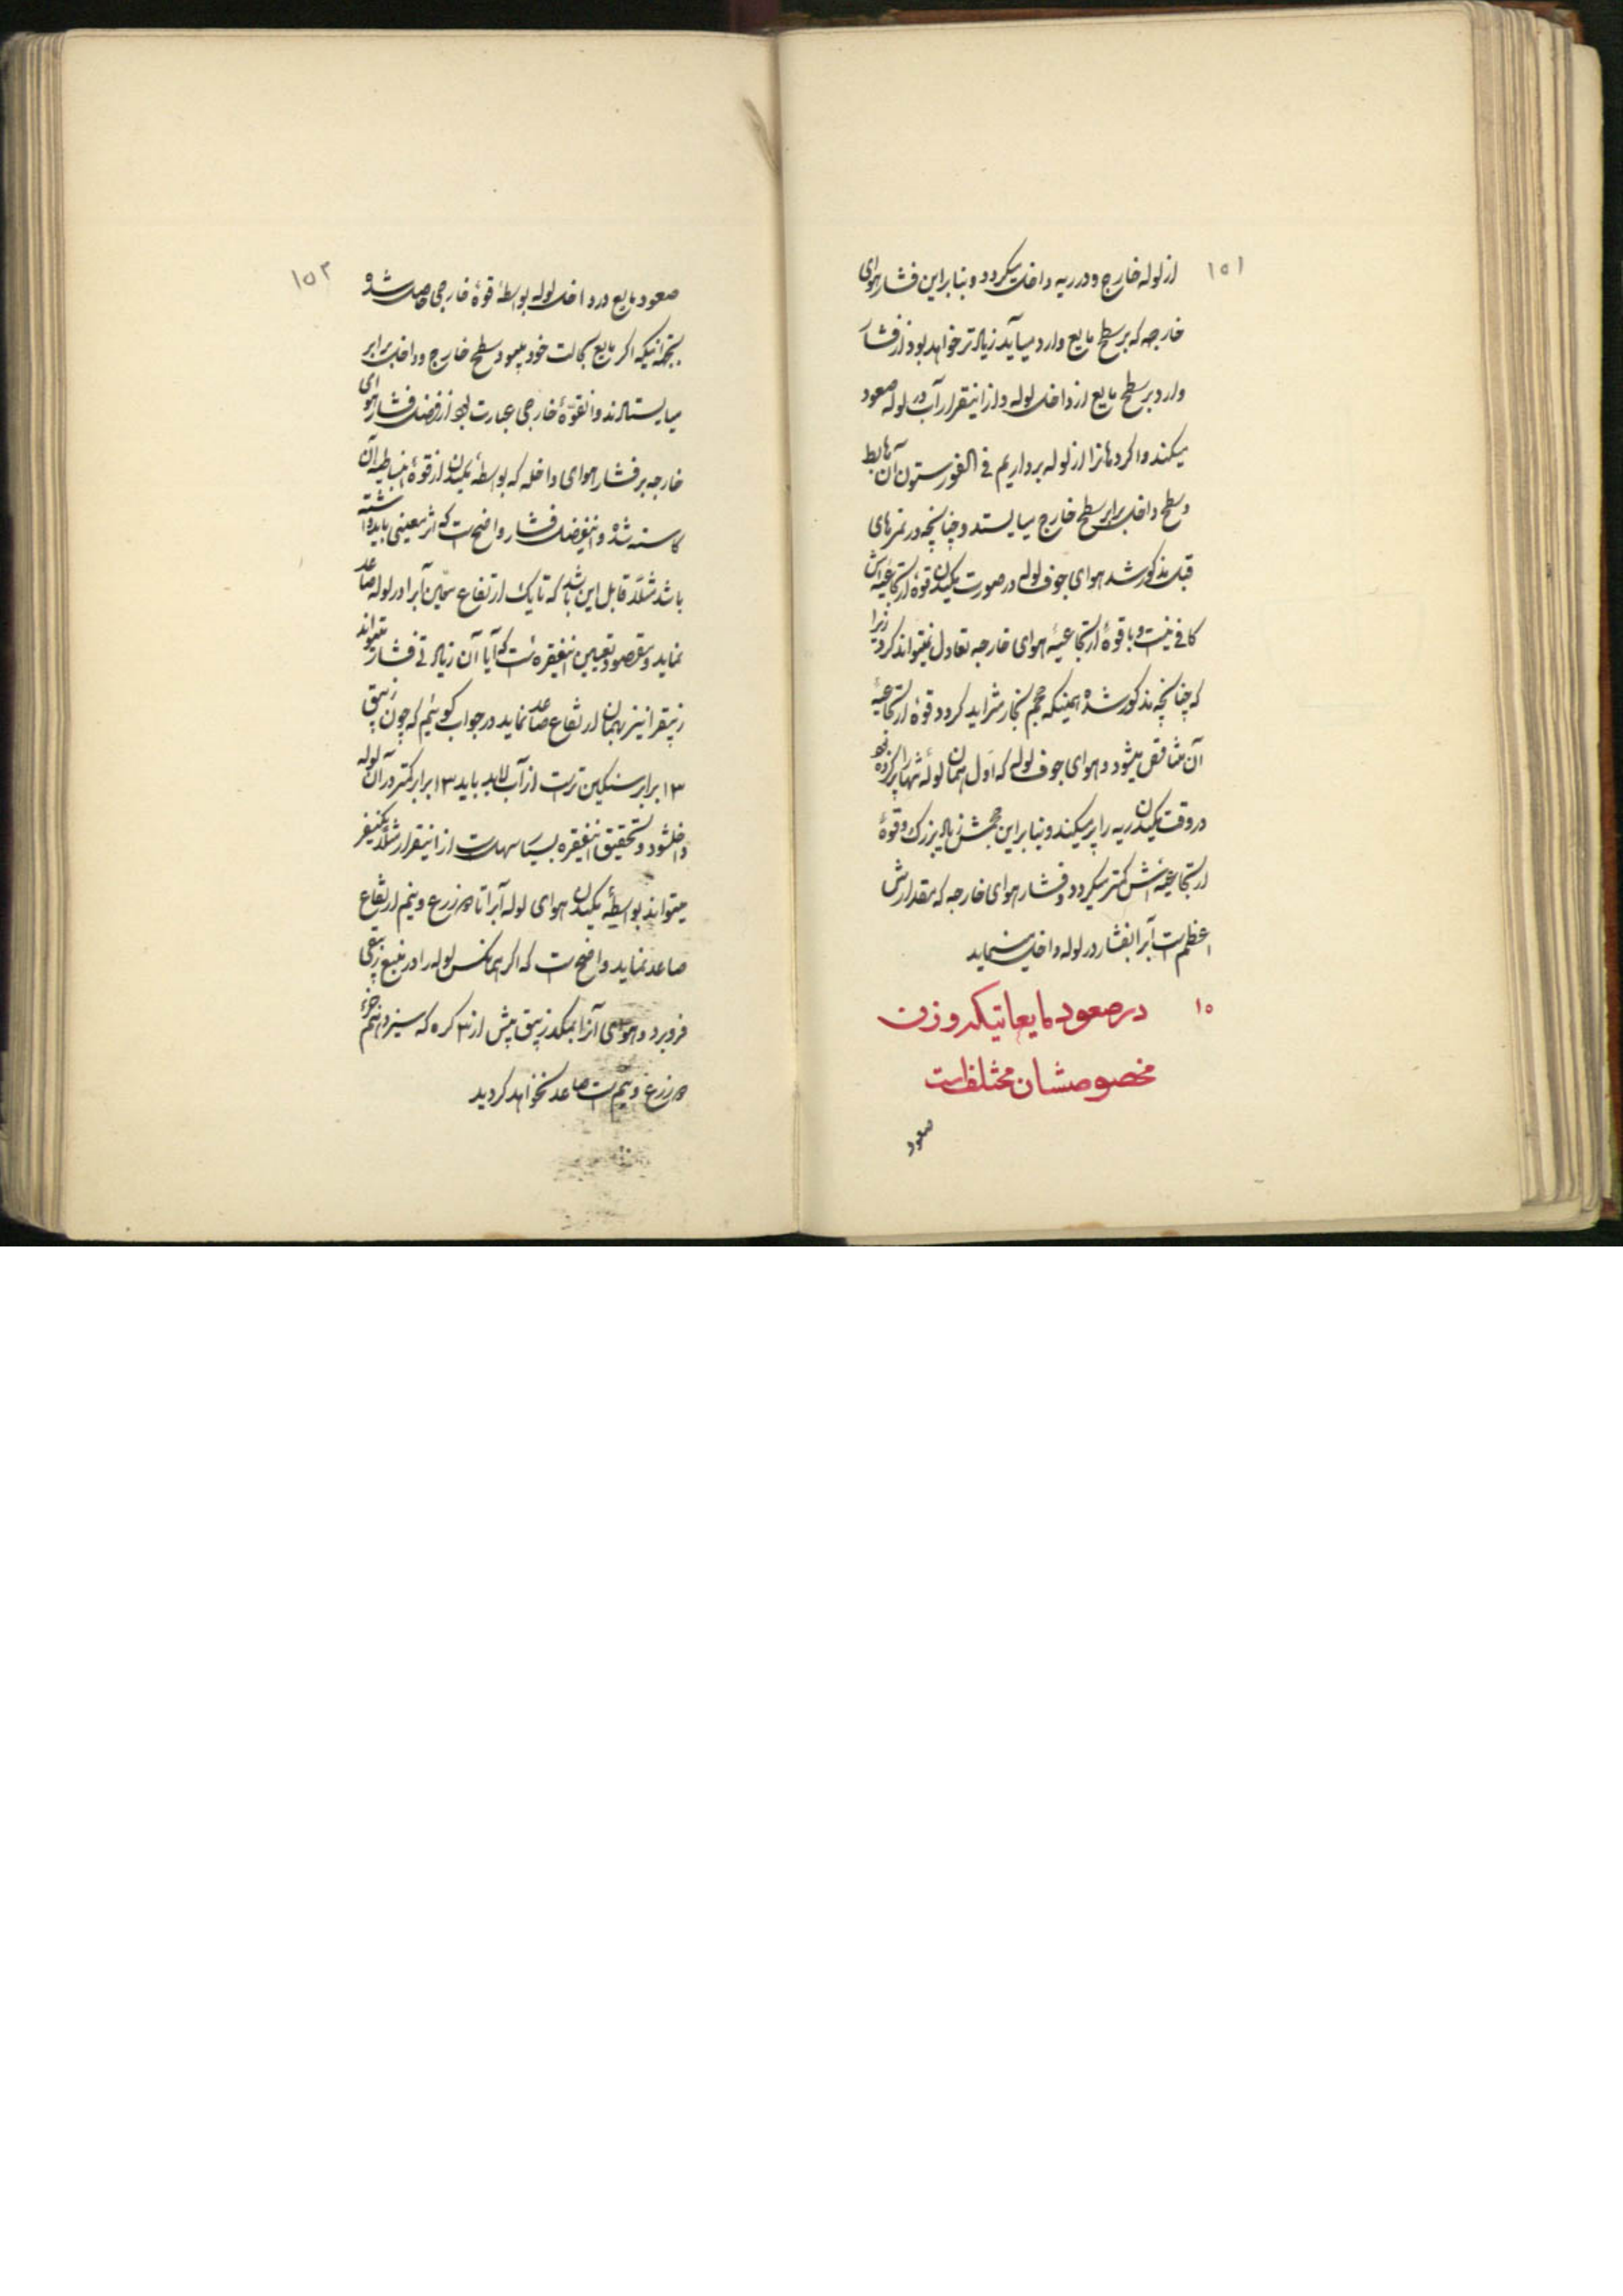 ۱۵۱
از لوله خارج و در ریه داخل میکردد و بنابراین فشار هوای
خارجه که بر سطح مایع وارد میآید زیاد تر خواهد بود از فشار
وارد بر سطح مایع از داخل لوله و از اینقرار آب در لوله صعود
میکند و اکر دهانرا از لوله برداریم فی الفور ستون آن هابط
و سطح داخل برابر سطح خارج میایستد و چنانچه در نمرهای
قبل مذکور شد هوای جوف لوله در صورت مکیدن قوهٔ ارتجاعیه‌اش
کافی نیست و با قوهٔ ارتجاعیهٔ هوای خارجه تعادل نمیتواند کرد زیرا
که چنانچه مذکور شده همینکه حجم بخار متزاید کردد قوهٔ ارتجاعیهٔ
آن متناقص میشود و هوای جوف لوله که اول همان لوله تنها را پر کرده بود
در وقت مکیدن ریه را پر میکند و بنابراین حجمش زیاد بزرک و قوهٔ
ارتجاعیه‌اش کمتر میکردد و فشار هوای خارجه که مقدارش
اعظم است آبرا بفشار در لوله داخل مینماید
۱۵ در صعود مایعاتیکه وزن
مخصوصشان مختلف است
صعود
۱۵۲
صعود مایع در داخل لوله بواسطهٔ قوهٔ خارجی حاصل شده
بجهة اینکه اکر مایع بحالت خود میبود سطح خارج و داخل برابر
میایستادند و آنقوّهٔ خارجی عبارت بود از فضل فشار هوای
خارجه بر فشار هوای داخله که بواسطهٔ مکیدن از قوهٔ انبساطیه آن
کاسته شده و اینفضل فشار واضح است که اثر معینی باید داشته
باشد مثلا قابل این باشد که تا یک ارتفاع معین آبرا در لوله صاعد
نماید و مقصود تعیین اینفقره است که آیا آن زیادتی فشار میتواند
زیبقرا نیز بهمان ارتفاع صاعد نماید در جواب کوئیم که چون زیبق
۱۳ برابر سنکین تر است از آب لابد باید ۱۳ برابر کمتر در آن لوله
داخلشود و تحقیق اینفقره بسیار سهل است از اینقرار مثلا یکنفر
میتواند بواسطهٔ مکیدن هوای لوله آبرا تا ذرع و نیم ارتفاع
صاعد نماید واضح است که اکر همانکس لوله را در منبع زیبقی
فرو برد و هوای آنرا بمکد زیبق بیش از ۳ کره که سیزدهم جزء
ذرع و نیم است صاعد نخواهد کردید